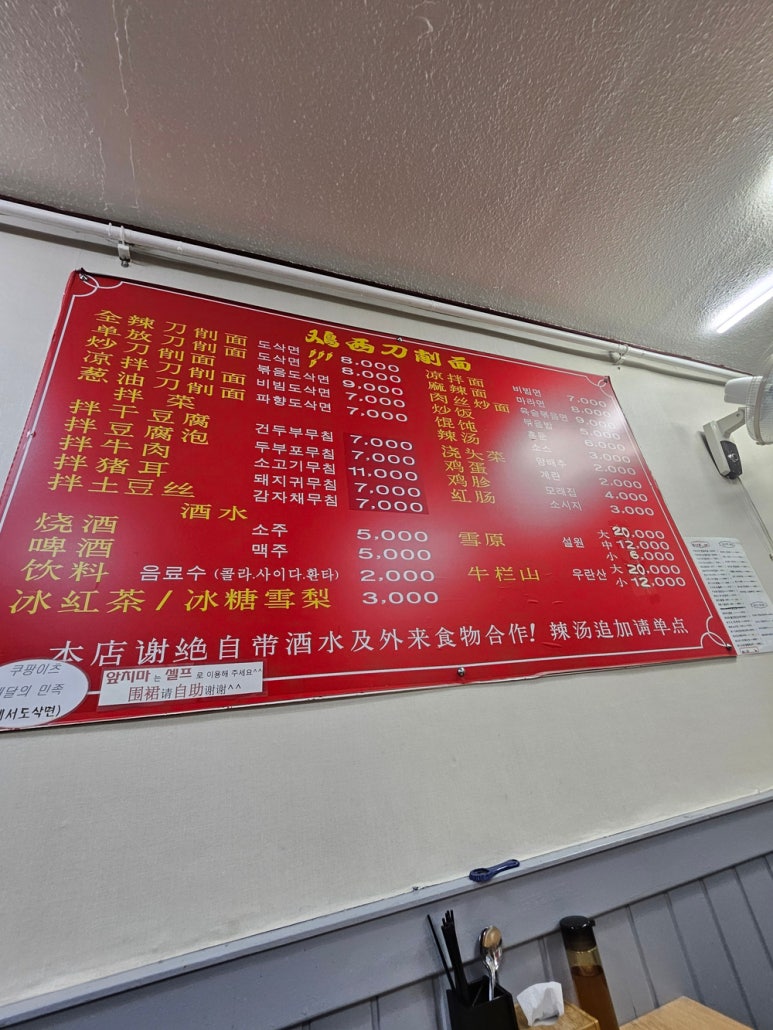 鸡西刀削面
全辣刀削面 도삭면 8.000
单放刀削面 도삭면 8.000
炒刀削面 볶음도삭면 9.000
凉拌刀削面 비빔도삭면 7.000
葱油刀削面 파향도삭면 7.000
拌菜
拌干豆腐 건두부무침 7.000
拌豆腐泡 두부포무침 7.000
拌牛肉 소고기무침 11.000
拌猪耳 돼지귀무침 7.000
拌土豆丝 감자채무침 7.000
凉拌面 비빔면 7.000
麻辣面 마라면 8.000
肉丝炒面 육슬볶음면 9.000
炒饭 볶음밥
馄饨 훈툰
辣汤 소스 3.000
浇头菜 양배추 2.000
鸡蛋 계란 2.000
鸡胗 모래집 4.000
红肠 소시지 3.000
酒水
烧酒 소주 5.000
啤酒 맥주 5.000
饮料 음료수 (콜라.사이다.환타) 2.000
冰红茶/冰糖雪梨 3.000
雪原 설원 大 20.000
中 12.000
小 6.000
牛栏山 우란산 大 20.000
小 12.000
本店谢绝自带酒水及外来食物合作! 辣汤追加请单点
쿠팡이츠
배달의 민족
도삭면)
앞치마 는 셀프 로 이용해 주세요^^
围裙请自助谢谢^^